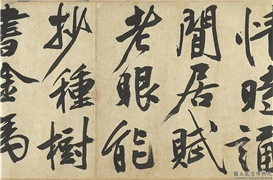 誦
閒居賦
老眼能
抄種樹
書金馬